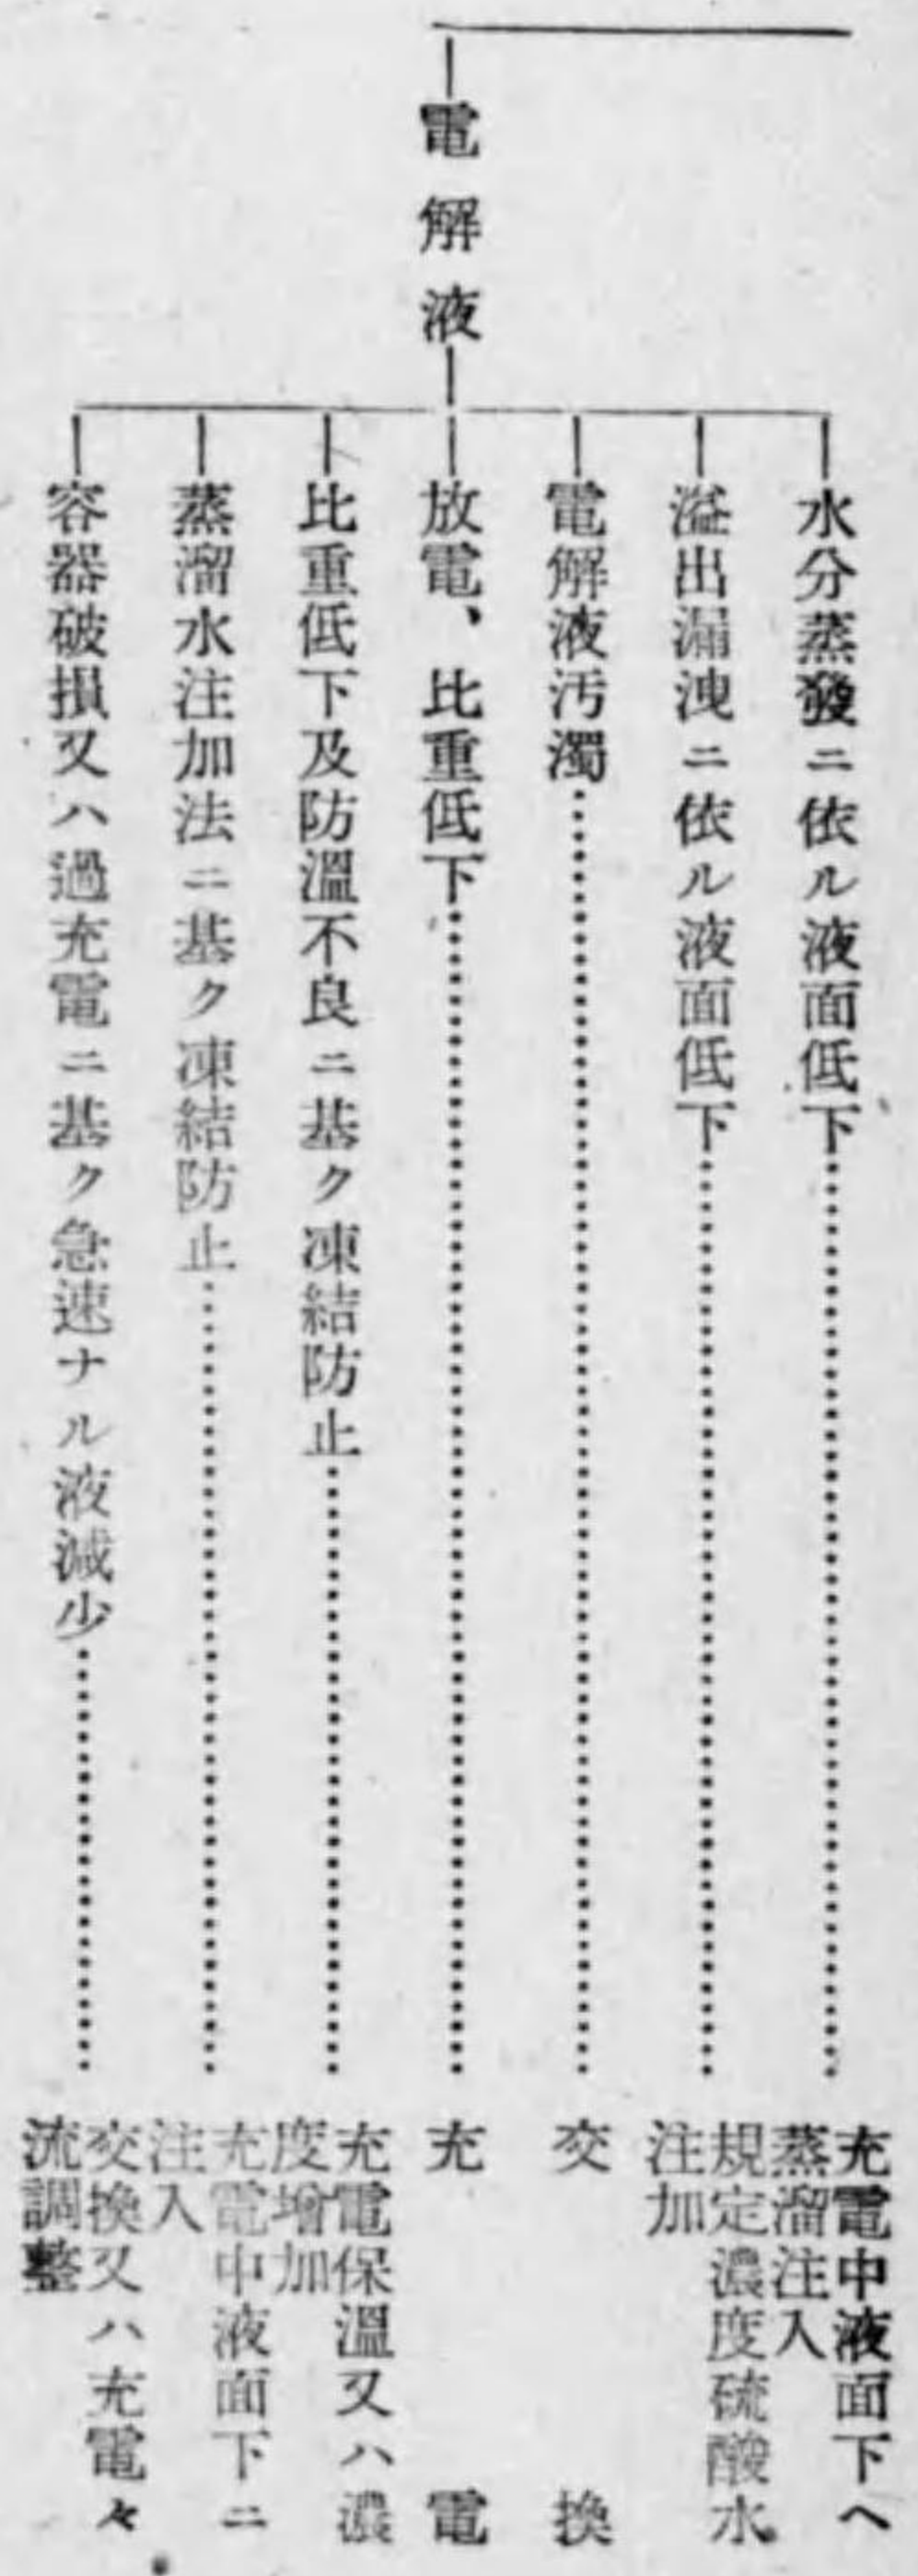 電解液
水分蒸發ニ依ル液面低下……充電中液面下ヘ
蒸溜注入
溢出漏洩ニ依ル液面低下……規定濃度硫酸水
注加
電解液汚濁……交換
放電、比重低下……充電
比重低下及防溫不良ニ基ク凍結防止……充電保溫又ハ濃
度增加
蒸溜水注加法ニ基ク凍結防止……充電中液面下ニ
注入
容器破損又ハ過充電ニ基ク急速ナル液減少……交換又ハ充電々
流調整